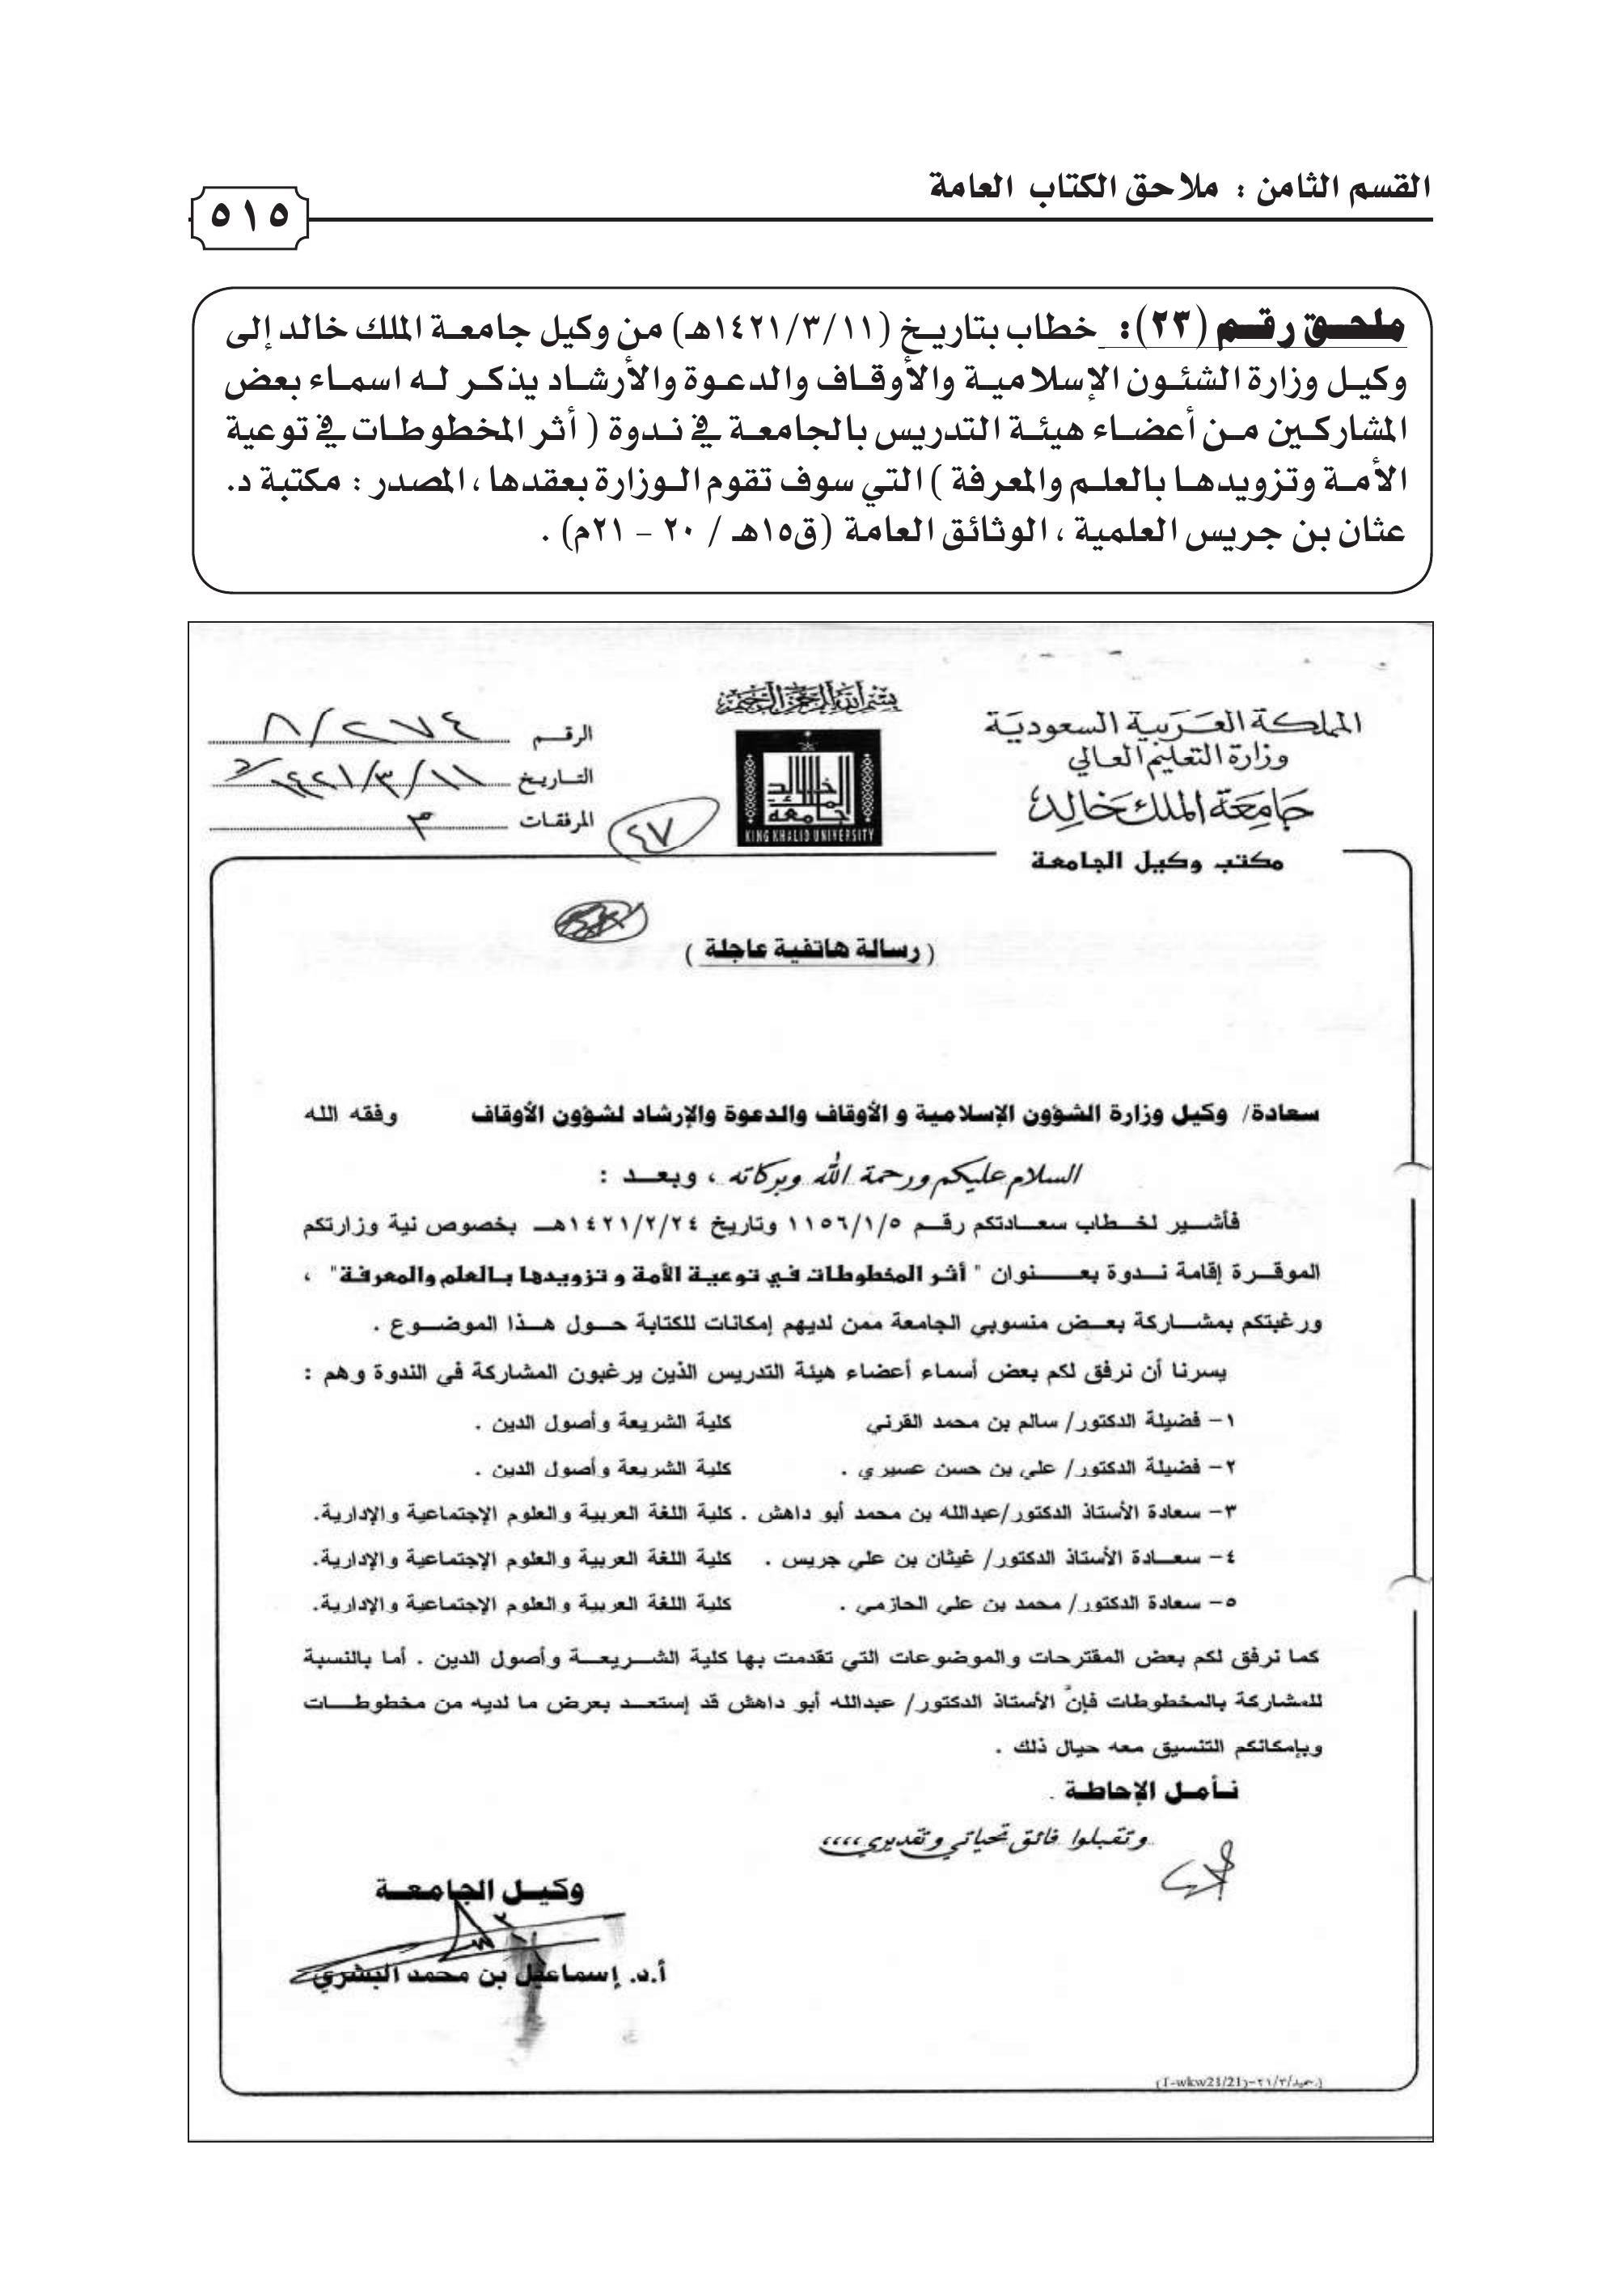 القسم الثامن : ملاحق الكتاب العامة
٥١٥
ملحق رقم (٢٣): خطاب بتاريخ (١٤٢١/٣/١١هـ) من وكيل جامعة الملك خالد إلى
وكيل وزارة الشئون الإسلامية والأوقاف والدعوة والأرشاد يذكر له اسماء بعض
المشاركين من أعضاء هيئة التدريس بالجامعة في ندوة ( أثر المخطوطات في توعية
الأمة وتزويدها بالعلم والمعرفة ) التي سوف تقوم الوزارة بعقدها ، المصدر : مكتبة د.
عثان بن جريس العلمية ، الوثائق العامة (ق١٥هـ / ٢٠ – ٢١م) .
بسم الله الرحمن الرحيم
المملكة العربية السعودية
وزارة التعليم العالي
جامعة الملك خالد
مكتب وكيل الجامعة
جامعة الملك خالد
KING KHALID UNIVERSITY
الرقم ٨/٢٧٤
التاريخ ١٤٢١/٣/١١
المرفقات ٣
٤٧
( رسالة هاتفية عاجلة )
سعادة/ وكيل وزارة الشؤون الإسلامية و الأوقاف والدعوة والإرشاد لشؤون الأوقاف وفقه الله
السلام عليكم ورحمة الله وبركاته ، وبعد :
فأشير لخطاب سعادتكم رقم ١١٥٦/١/٥ وتاريخ ١٤٢١/٢/٢٤هـ بخصوص نية وزارتكم
الموقرة إقامة ندوة بعنوان " أثر المخطوطات في توعية الأمة و تزويدها بالعلم والمعرفة" ،
ورغبتكم بمشاركة بعض منسوبي الجامعة ممن لديهم إمكانات للكتابة حول هذا الموضوع .
يسرنا أن نرفق لكم بعض أسماء أعضاء هيئة التدريس الذين يرغبون المشاركة في الندوة وهم :
١– فضيلة الدكتور/ سالم بن محمد القرني كلية الشريعة وأصول الدين .
٢– فضيلة الدكتور/ علي بن حسن عسيري . كلية الشريعة وأصول الدين .
٣– سعادة الأستاذ الدكتور/عبدالله بن محمد أبو داهش . كلية اللغة العربية والعلوم الإجتماعية والإدارية.
٤– سعادة الأستاذ الدكتور/ غيثان بن علي جريس . كلية اللغة العربية والعلوم الإجتماعية والإدارية.
٥– سعادة الدكتور/ محمد بن علي الحازمي . كلية اللغة العربية والعلوم الإجتماعية والإدارية.
كما نرفق لكم بعض المقترحات والموضوعات التي تقدمت بها كلية الشريعة وأصول الدين . أما بالنسبة
للمشاركة بالمخطوطات فإنّ الأستاذ الدكتور/ عبدالله أبو داهش قد إستعد بعرض ما لديه من مخطوطات
وبإمكانكم التنسيق معه حيال ذلك .
نأمل الإحاطة .
وتقبلوا فائق تحياتي وتقديري ،،،،
وكيل الجامعة
أ.د. إسماعيل بن محمد البشري